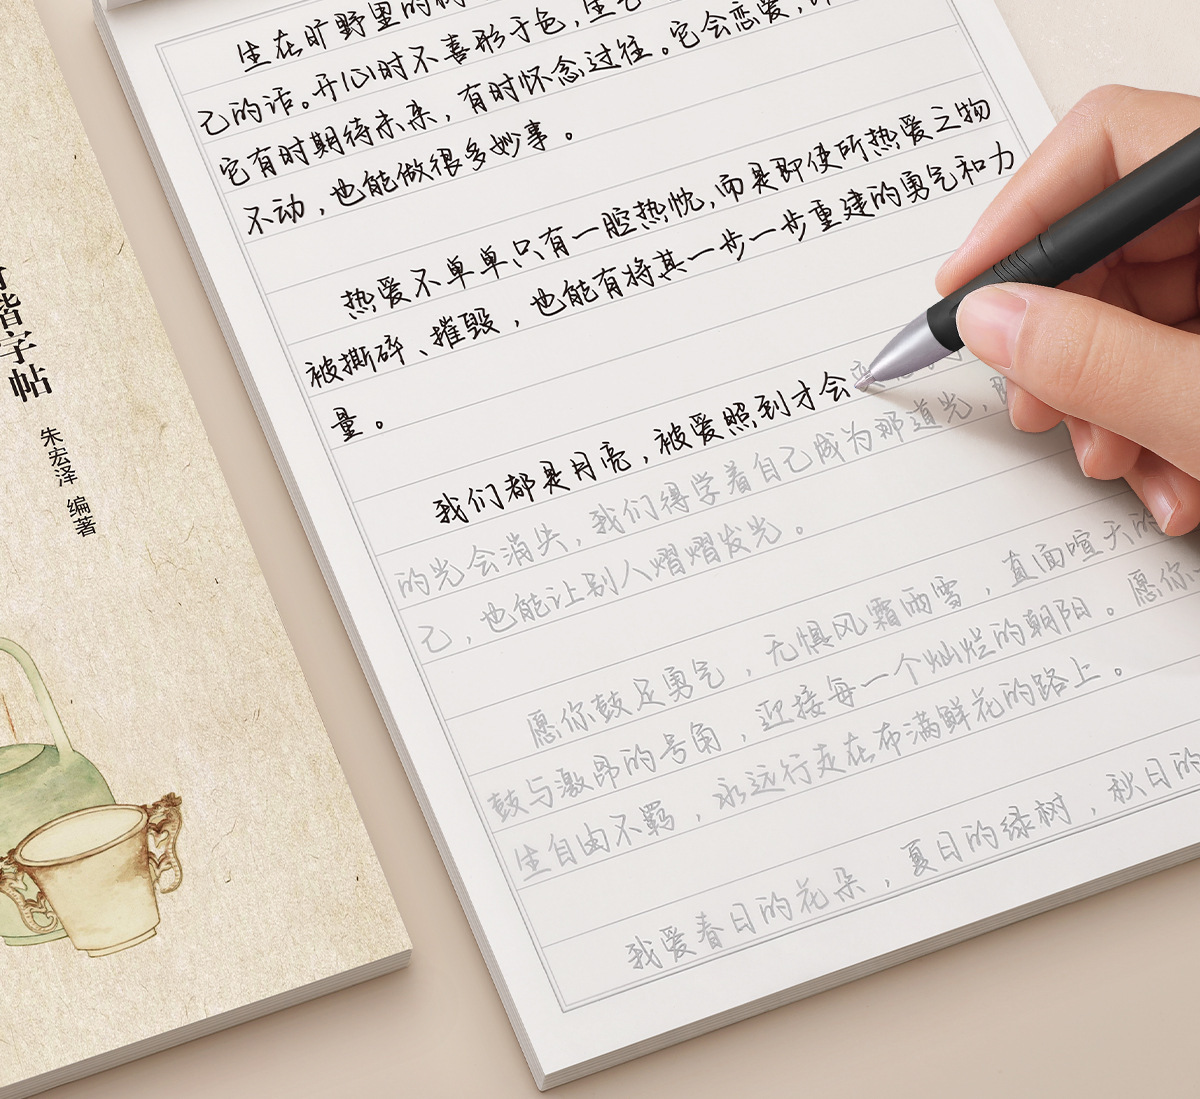 楷字帖
朱宏泽 编著
生在旷野里的
己的话。开心时不喜形于色，生
它有时期待未来，有时怀念过往。它会恋爱，
不动，也能做很多妙事。
热爱不单单只有一腔热忱，而是即使所热爱之物
被撕碎、摧毁，也能有将其一步一步重建的勇气和力
量。
我们都是月亮，被爱照到才会
的光会消失，我们得学着自己成为那道光，
己，也能让别人熠熠发光。
愿你鼓足勇气，无惧风霜雨雪，直面喧天的
鼓与激昂的号角，迎接每一个灿烂的朝阳。愿你
生自由不羁，永远行走在布满鲜花的路上。
我爱春日的花朵，夏日的绿树，秋日的